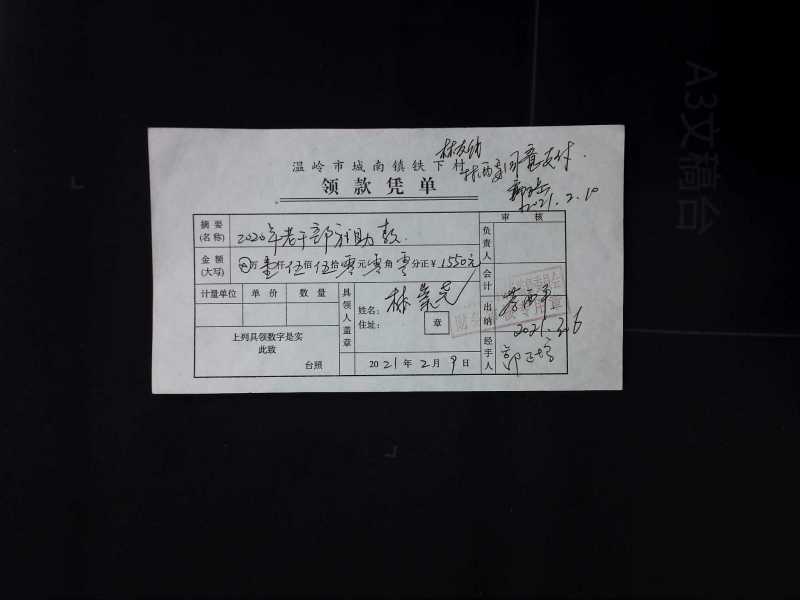 温岭市城南镇铁下村
同意支付.
领款凭单
2021.2.10
审核
摘要
(名称)
2020年老干部补助款.
负责人
金额
(大写)
万壹仟伍佰伍拾零元零角零分正¥1550元
计量单位 单价 数量
具领人盖章
姓名:
住址:
章
会计
出纳
2021.2.6
上列具领数字是实
此致
台照
2021年2月9日
经手人
A3文稿台